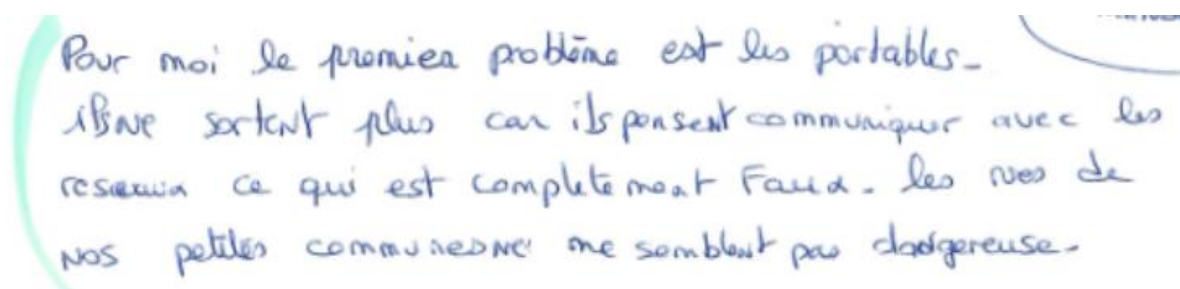 Pour moi le premier problème est les portables.
ilsne sortent plus car ils pensent communiquer avec les
reseaux ce qui est completement Faux. les rues de
nos petites communes ne me semblent pas dadgereuse.